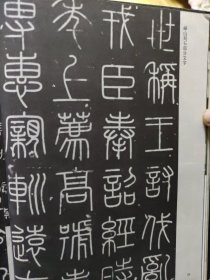 世稱王討伐亂
戎臣奉詔經時
年上薦高號孝
專惠親巡遠